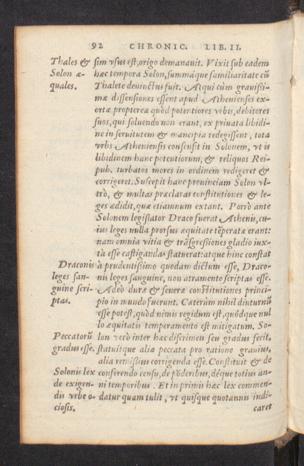 92 CHRONIC. LIB. II.
Thales &
Solon æ-
quales.
sim vsus est, origo demanauit. Vixit sub eadem
hac tempora Solon, summáque familiaritate cũ
Thalete deuinctus fuit. Atqui cùm grauissi-
mæ dissensiones essent apud Athenienses ex-
ortæ propterea quòd potentiores vrbis, debitores
suos, qui soluendo non erant, ex priuata libidi-
ne in seruitutem & mancipia redegissent, tota
vrbs Atheniensis consensit in Solonem, vt is
libidinem hanc potentiorum, & reliquos Rei-
pub. turbatos mores in ordinem redigeret &
corrigeret. Suscepit hanc prouinciam Solon vl-
trò, & multas præclaras constitutiones & le-
ges ædidit, quæ etiamnum extant. Porrò ante
Solonem legislator Draco fuerat Athenis, cu-
ius leges nulla prorsus æquitate tẽperatæ erant:
nam omnia vitia & trãsgressiones gladio iux-
tà esse castigandas statuerat: atque hinc constat
Draconis
leges san-
guine scri-
ptas.
à prudentissimo quodam dictum esse, Draco-
nis leges sanguine, non atramento scriptas esse.
Adeò duræ & seueræ constitutiones princi-
pio in mundo fuerunt. Cæterùm nihil diuturnũ
esse potest, quòd nimis regidum est, quódque nul
lo æquitatis temperamento est mitigatum. So-
Peccatorũ
gradus esse.
lon verò inter hæc discrimen seu gradus fecit,
statuitque alia peccata pro ratione grauius,
alia remissius corrigenda esse. Constituit & de
Solonis lex
de exigen-
dis vrbe o-
ciosis.
conferendo censu, de põderibus, déque totius an-
ni temporibus. Et in primis hæc lex commen-
datur quam tulit, vt quisque quotannis indi-
caret